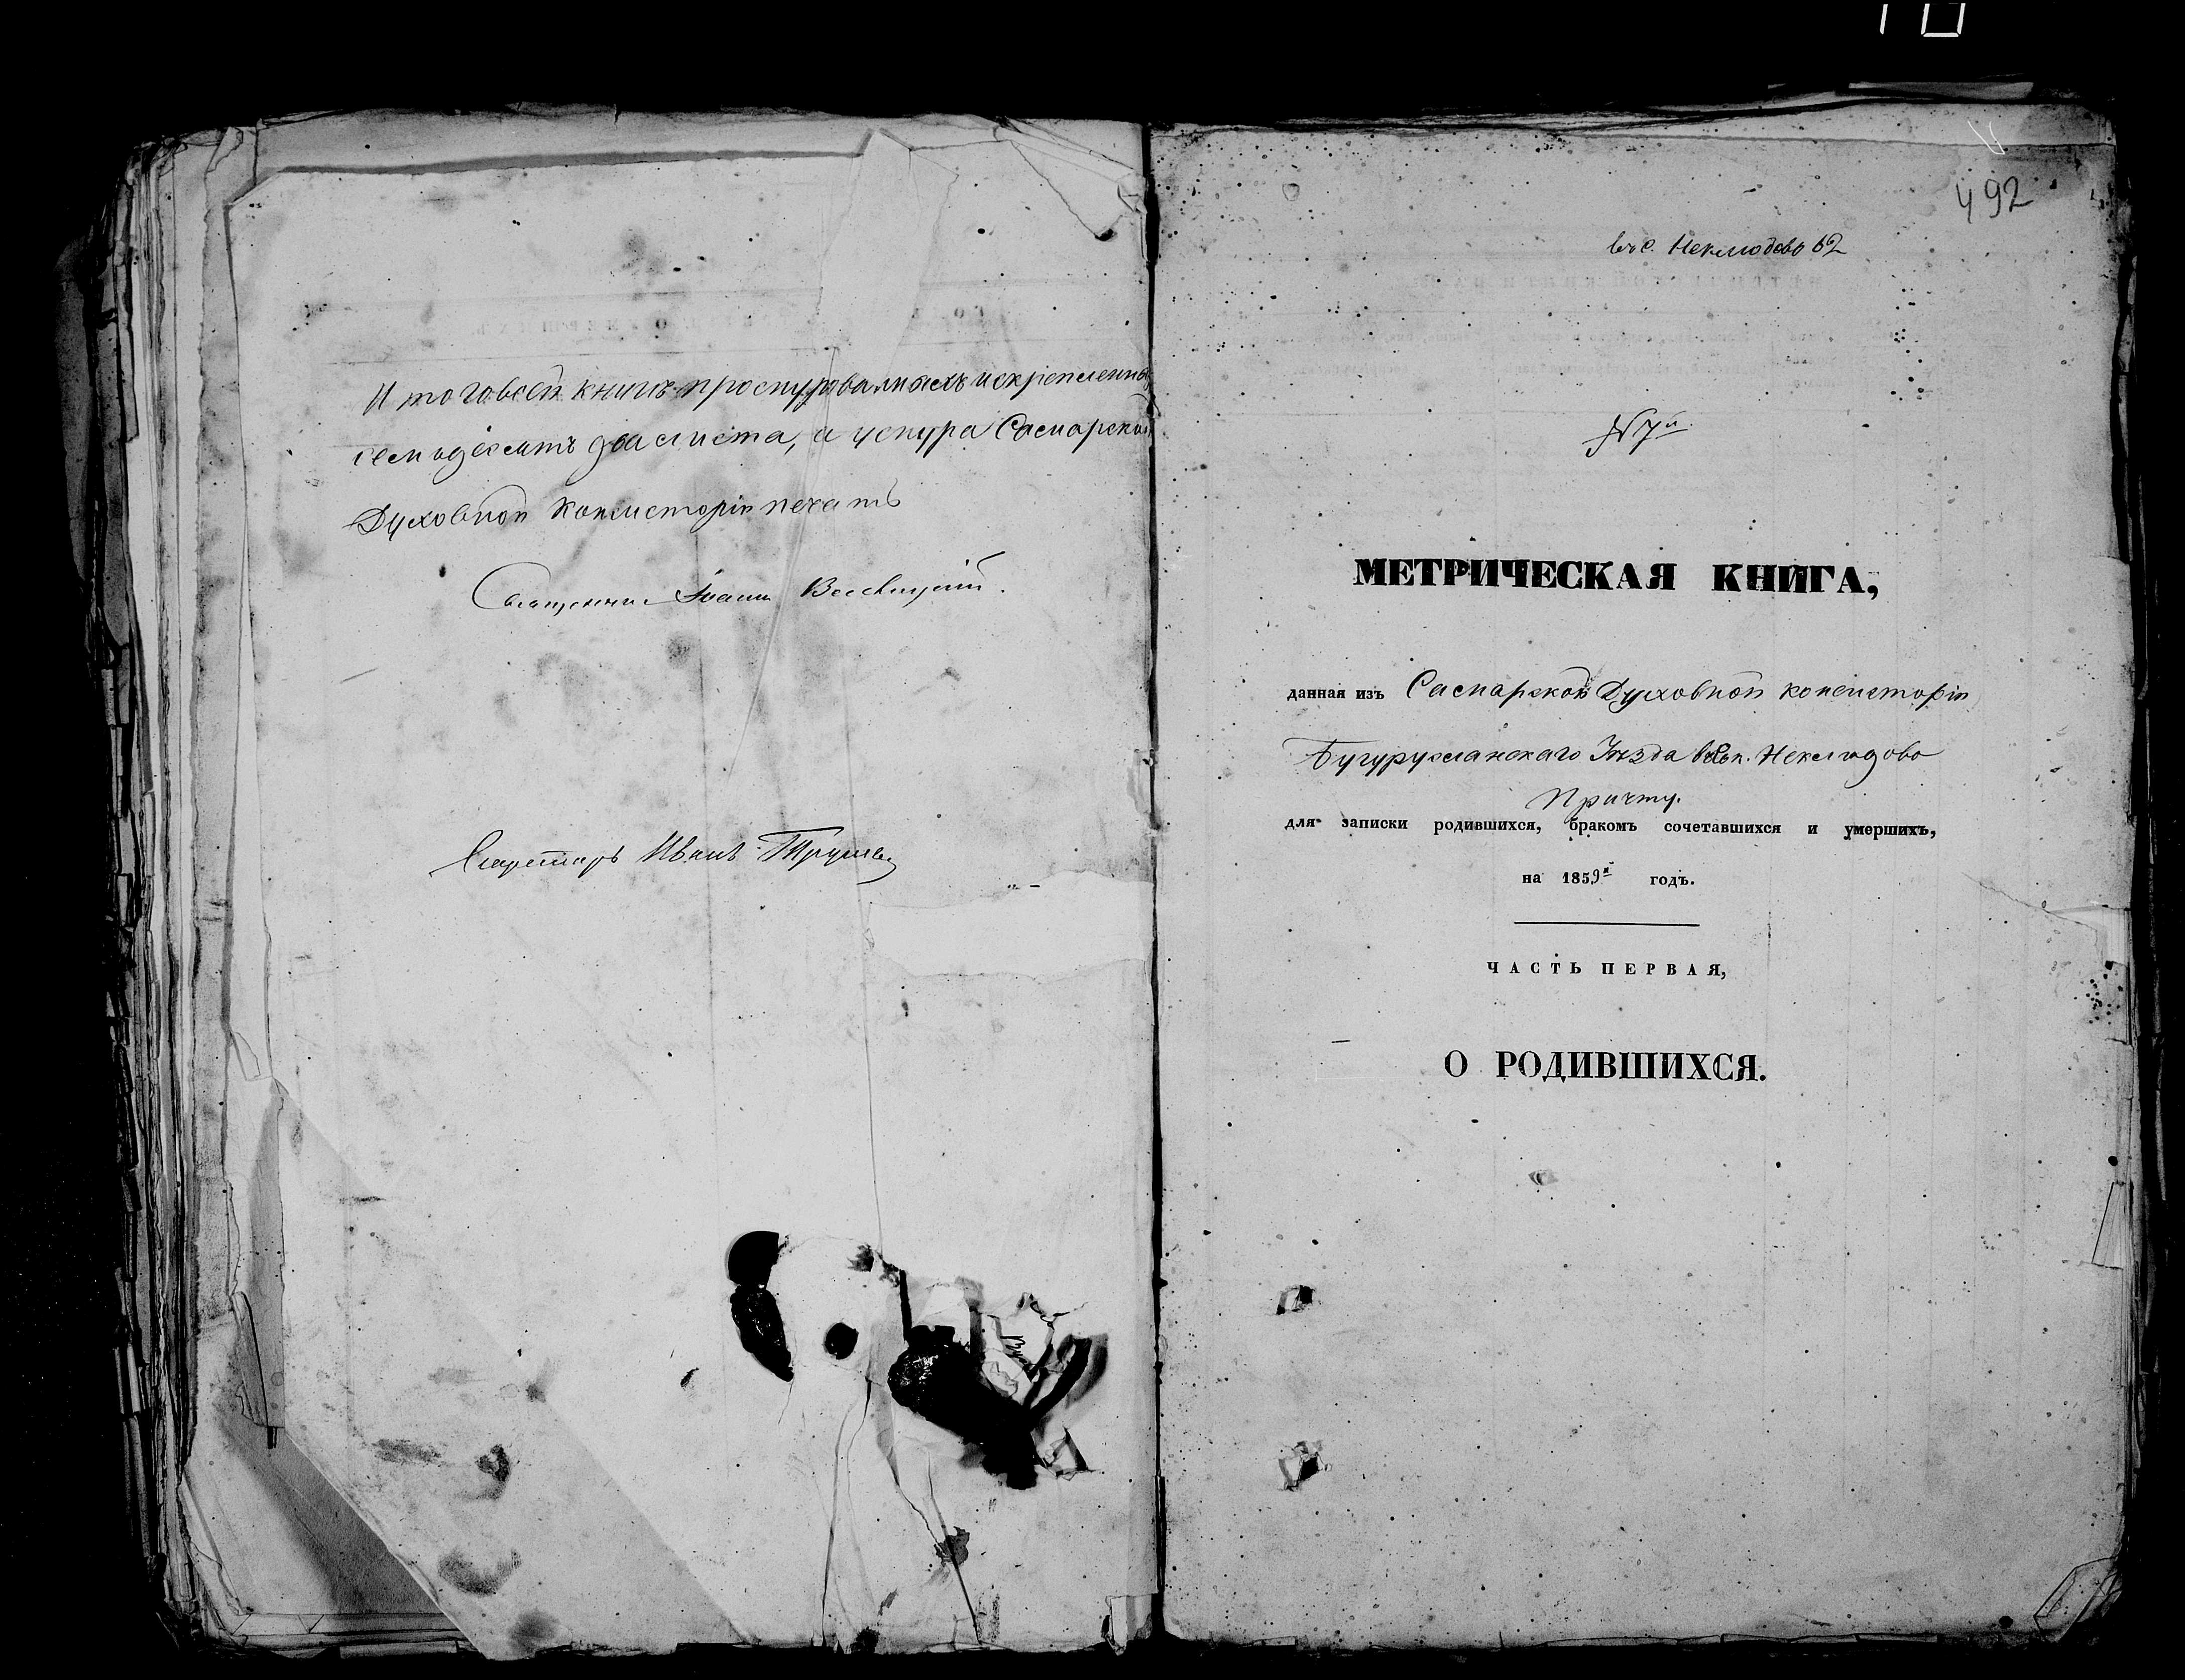 Итого въ сей книгѣ прошнурованныхъ и скрѣпленны
семьдесятъ два листа, а у шнура Самарской
Духовной Консисторіи печать
Священникъ Іоаннъ
Секретарь Иванъ
492
въ с. Неклюдово 62
№ 7й.
МЕТРИЧЕСКАЯ КНИГА,
данная изъ Самарской Духовной консисторіи
Бугурусланскаго Уѣзда въ Неклюдово
Причту.
для записки родившихся, бракомъ сочетавшихся и умершихъ,
на 1859й годъ.
ЧАСТЬ ПЕРВАЯ,
О РОДИВШИХСЯ.